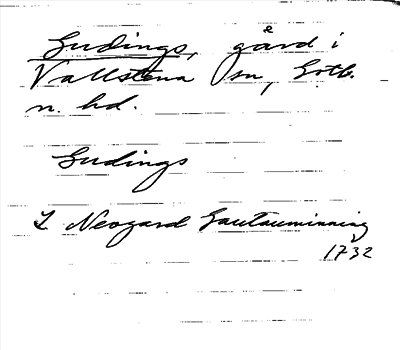 Gudings, gård i
Vallstena sn, Gotl.
n. hd.
Gudings
L Neogard Gautauminning
1732